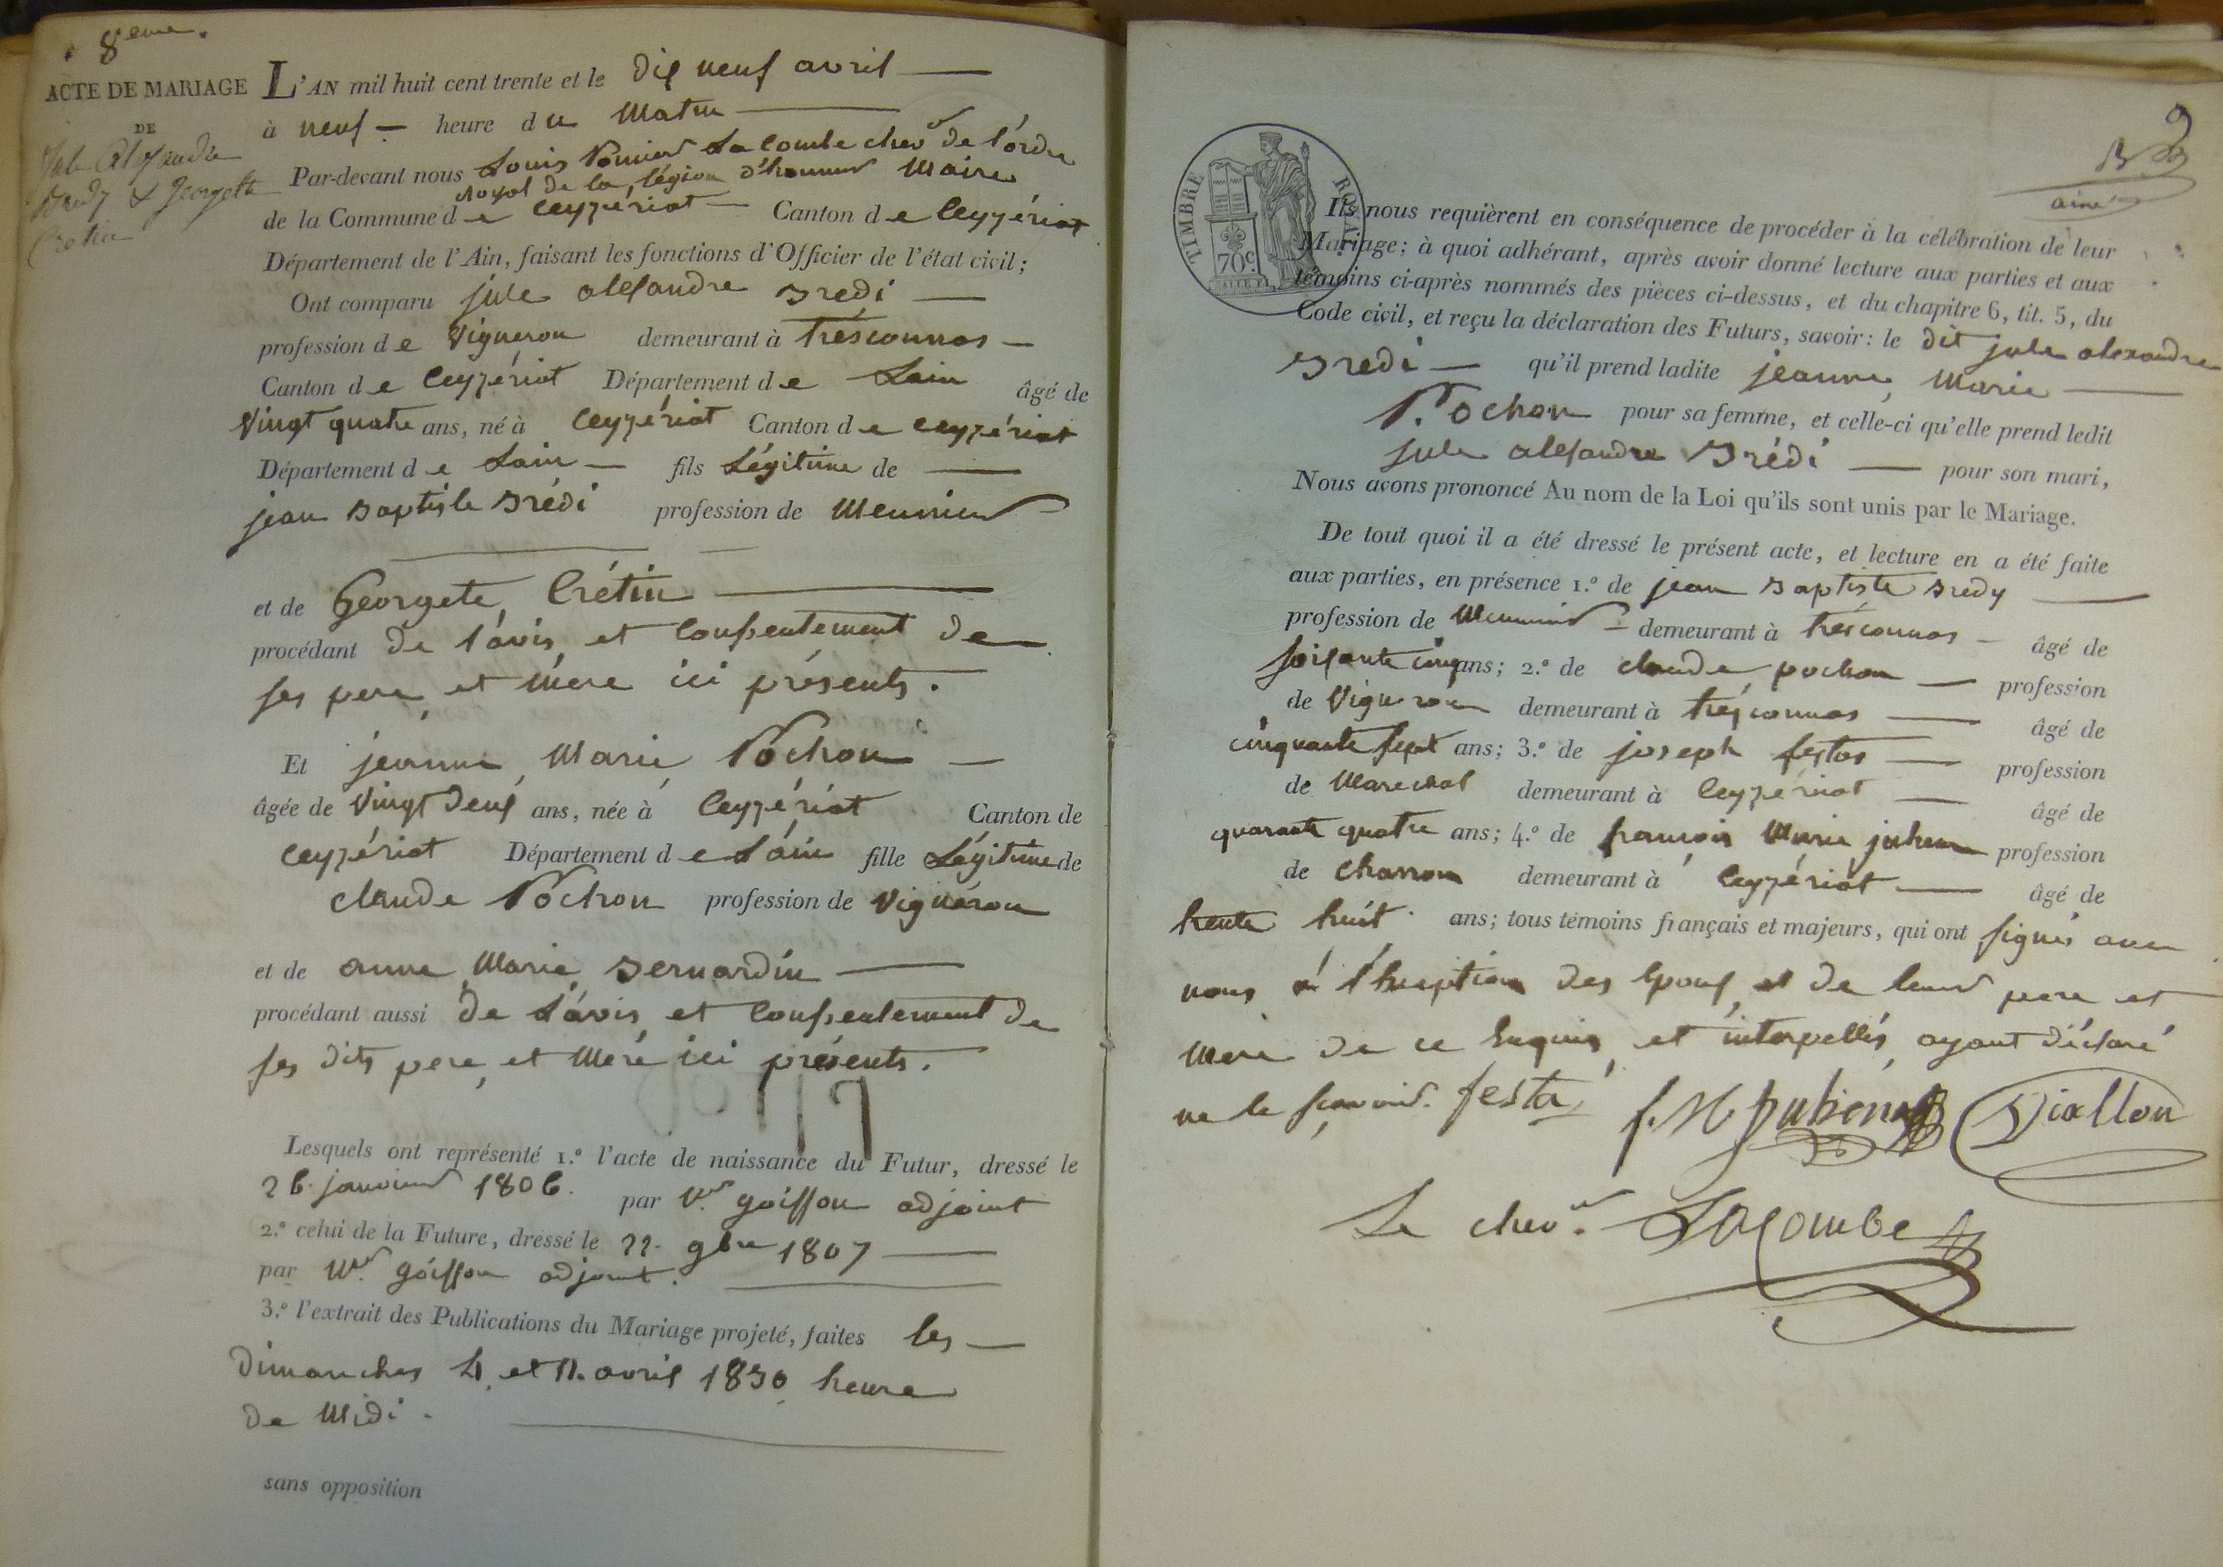 8eme.
ACTE DE MARIAGE
DE
Jule Alexandre
Bredy & Georgette
Cretin
L'AN mil huit cent trente et le dix neuf avril
à neuf heure du matin
Par-devant nous Louis La Combe chevr de l'ordre
royal de la légion d'honneur Maire
de la Commune de Ceyzériat Canton de Ceyzériat
Département de l'Ain, faisant les fonctions d'Officier de l'état civil;
Ont comparu jule alexandre Brédi
profession de Vigneron demeurant à trésconnas
Canton de Ceyzériat Département de Lain âgé de
Vingt quatre ans, né à Ceyzériat Canton de Ceyzériat
Département de Lain fils Légitime de
jean Baptiste Brédi profession de Meunier
et de Georgete Crétin
procédant de l'avis et Consentement de
ses pere et mere ici présents.
Et jeanne Marie Pochon
âgée de Vingt deux ans, née à Ceyzériat Canton de
Ceyzériat Département de Lain fille Légitime de
claude Pochon profession de Vigneron
et de anne Marie Bernardin
procédant aussi de L'avis et Consentement de
ses dits pere et Mere ici présents.
Lesquels ont représenté 1.º l'acte de naissance du Futur, dressé le
26. janvier 1806. par Mr goiffon adjoint
2.º celui de la Future, dressé le 22. 9bre 1807
par Mr. goiffon adjoint.
3.º l'extrait des Publications du Mariage projeté, faites les
dimanches 4 et 11. avril 1830 heure
de Midi.
sans opposition
9
ainé
TIMBRE ROYAL
70c.
Ils nous requièrent en conséquence de procéder à la célébration de leur
Mariage; à quoi adhérant, après avoir donné lecture aux parties et aux
témoins ci-après nommés des pièces ci-dessus, et du chapitre 6, tit. 5, du
Code civil, et reçu la déclaration des Futurs, savoir: le dit jule alexandre
Bredi qu'il prend ladite jeanne Marie
Pochon pour sa femme, et celle-ci qu'elle prend ledit
jule alexandre Brédi pour son mari,
Nous avons prononcé Au nom de la Loi qu'ils sont unis par le Mariage.
De tout quoi il a été dressé le présent acte, et lecture en a été faite
aux parties, en présence 1.º de jean Baptiste Bredy
profession de Meunier demeurant à tresconnas âgé de
soixante cinq ans; 2.º de claude pochon profession
de Vigneron demeurant à trésconnas âgé de
cinquante sept ans; 3.º de joseph festas profession
de Marechal demeurant à Ceyzériat âgé de
quarante quatre ans; 4.º de francois Marie profession
de Charron demeurant à Ceyzériat âgé de
trente huit ans; tous témoins français et majeurs, qui ont signés avec
nous à l'Exeption des Epoux et de leurs pere et
Mere de ce Enquis et interpellés ayant déclaré
ne le sçavoir. festa f. M Diallon
Le chevr. Lacombe